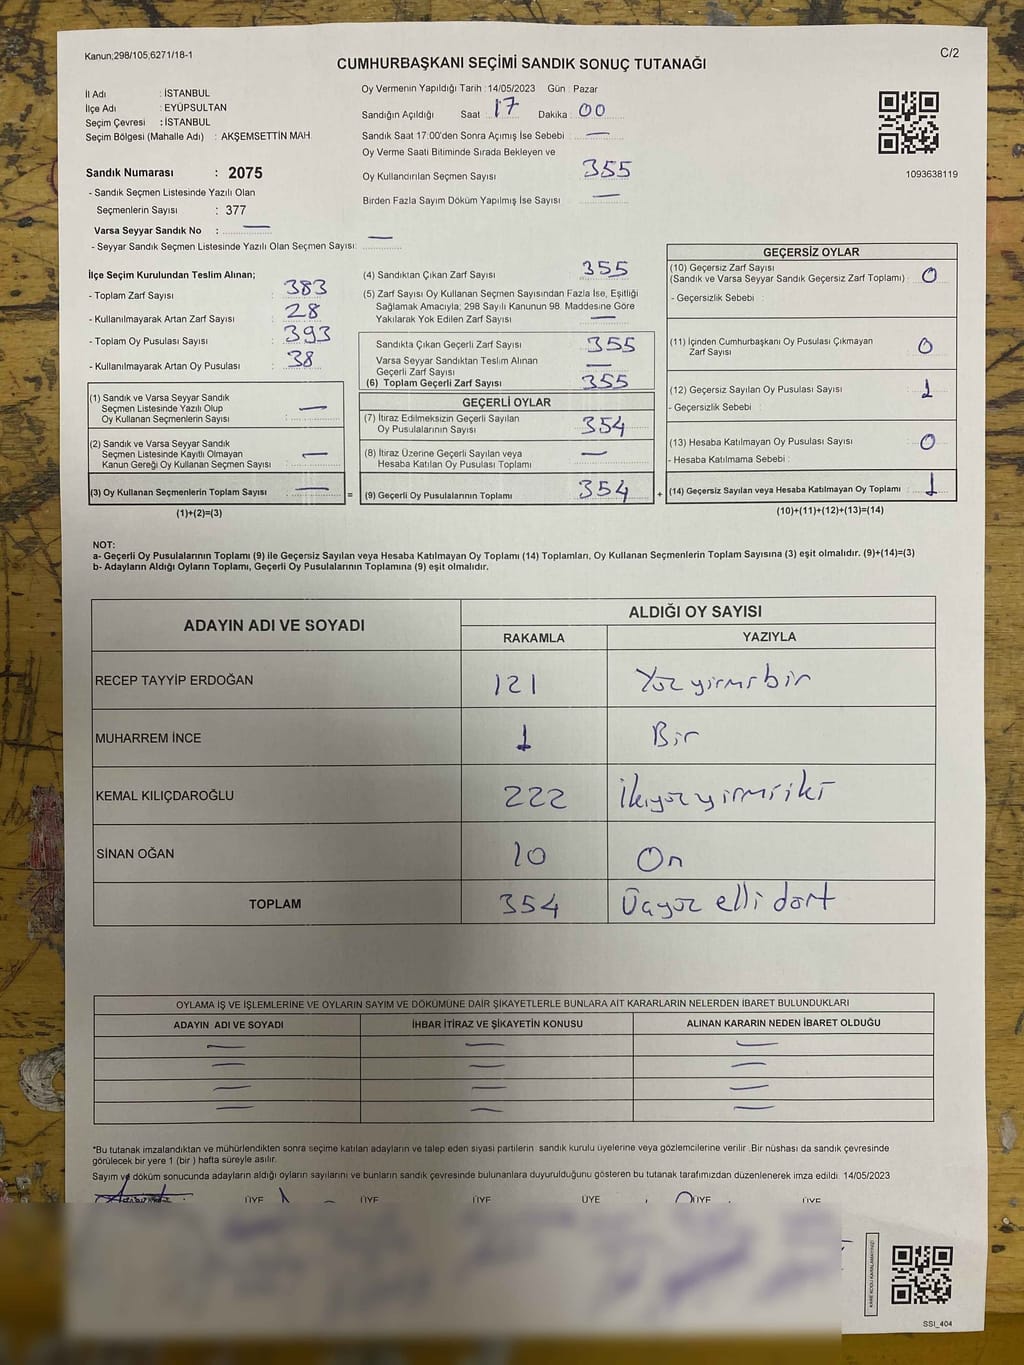 Kanun;298/105,6271/18-1
C/2
CUMHURBAŞKANI SEÇİMİ SANDIK SONUÇ TUTANAĞI
İl Adı : İSTANBUL
İlçe Adı : EYÜPSULTAN
Seçim Çevresi : İSTANBUL
Seçim Bölgesi (Mahalle Adı) : AKŞEMSETTİN MAH.
Sandık Numarası : 2075
- Sandık Seçmen Listesinde Yazılı Olan
Seçmenlerin Sayısı : 377
Varsa Seyyar Sandık No : —
- Seyyar Sandık Seçmen Listesinde Yazılı Olan Seçmen Sayısı: —
Oy Vermenin Yapıldığı Tarih :14/05/2023 Gün : Pazar
Sandığın Açıldığı Saat 17 Dakika : 00
Sandık Saat 17:00'den Sonra Açımış İse Sebebi : —
Oy Verme Saati Bitiminde Sırada Bekleyen ve
Oy Kullandırılan Seçmen Sayısı 355
Birden Fazla Sayım Döküm Yapılmış İse Sayısı —
1093638119
İlçe Seçim Kurulundan Teslim Alınan;
- Toplam Zarf Sayısı : 383
- Kullanılmayarak Artan Zarf Sayısı : 28
- Toplam Oy Pusulası Sayısı : 393
- Kullanılmayarak Artan Oy Pusulası : 38
(1) Sandık ve Varsa Seyyar Sandık
Seçmen Listesinde Yazılı Olup
Oy Kullanan Seçmenlerin Sayısı : —
(2) Sandık ve Varsa Seyyar Sandık
Seçmen Listesinde Kayıtlı Olmayan
Kanun Gereği Oy Kullanan Seçmen Sayısı : —
(3) Oy Kullanan Seçmenlerin Toplam Sayısı : —
=
(1)+(2)=(3)
(4) Sandıktan Çıkan Zarf Sayısı 355
(5) Zarf Sayısı Oy Kullanan Seçmen Sayısından Fazla İse, Eşitliği
Sağlamak Amacıyla; 298 Sayılı Kanunun 98. Maddesine Göre
Yakılarak Yok Edilen Zarf Sayısı —
Sandıkta Çıkan Geçerli Zarf Sayısı 355
Varsa Seyyar Sandıktan Teslim Alınan
Geçerli Zarf Sayısı —
(6) Toplam Geçerli Zarf Sayısı 355
GEÇERLİ OYLAR
(7) İtiraz Edilmeksizin Geçerli Sayılan
Oy Pusulalarının Sayısı 354
(8) İtiraz Üzerine Geçerli Sayılan veya
Hesaba Katılan Oy Pusulası Toplamı —
(9) Geçerli Oy Pusulalarının Toplamı 354
+
GEÇERSİZ OYLAR
(10) Geçersiz Zarf Sayısı
(Sandık ve Varsa Seyyar Sandık Geçersiz Zarf Toplamı) : 0
- Geçersizlik Sebebi :
(11) İçinden Cumhurbaşkanı Oy Pusulası Çıkmayan
Zarf Sayısı 0
(12) Geçersiz Sayılan Oy Pusulası Sayısı 1
- Geçersizlik Sebebi :
(13) Hesaba Katılmayan Oy Pusulası Sayısı 0
- Hesaba Katılmama Sebebi :
(14) Geçersiz Sayılan veya Hesaba Katılmayan Oy Toplamı : 1
(10)+(11)+(12)+(13)=(14)
NOT:
a- Geçerli Oy Pusulalarının Toplamı (9) ile Geçersiz Sayılan veya Hesaba Katılmayan Oy Toplamı (14) Toplamları, Oy Kullanan Seçmenlerin Toplam Sayısına (3) eşit olmalıdır. (9)+(14)=(3)
b- Adayların Aldığı Oyların Toplamı, Geçerli Oy Pusulalarının Toplamına (9) eşit olmalıdır.
ADAYIN ADI VE SOYADI
ALDIĞI OY SAYISI
RAKAMLA YAZIYLA
RECEP TAYYİP ERDOĞAN 121 Yüz yirmi bir
MUHARREM İNCE 1 Bir
KEMAL KILIÇDAROĞLU 222 İkiyüz yirmi iki
SİNAN OĞAN 10 On
TOPLAM 354 Üçyüz elli dört
OYLAMA İŞ VE İŞLEMLERİNE VE OYLARIN SAYIM VE DÖKÜMÜNE DAİR ŞİKAYETLERLE BUNLARA AİT KARARLARIN NELERDEN İBARET BULUNDUKLARI
ADAYIN ADI VE SOYADI İHBAR İTİRAZ VE ŞİKAYETİN KONUSU ALINAN KARARIN NEDEN İBARET OLDUĞU
— — —
— — —
— — —
— — —
*Bu tutanak imzalandıktan ve mühürlendikten sonra seçime katılan adayların ve talep eden siyasi partilerin sandık kurulu üyelerine veya gözlemcilerine verilir. Bir nüshası da sandık çevresinde
görülecek bir yere 1 (bir ) hafta süreyle asılır.
Sayım ve döküm sonucunda adayların aldığı oyların sayılarını ve bunların sandık çevresinde bulunanlara duyurulduğunu gösteren bu tutanak tarafımızdan düzenlenerek imza edildi. 14/05/2023
ÜYE ÜYE ÜYE ÜYE ÜYE ÜYE
SSI_404